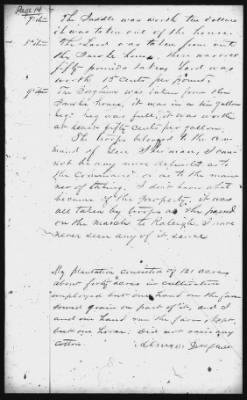 Page 14
7th Item The Saddle was worth ten dollars
it was taken out of the house.
8th Item The Lard was taken from out
the Smoke house, there was over
fifty pounds taken Lard was
worth 15 cents per pound.
9th Item The Sorghum was taken from the
Smoke house, it was in a ten gallon
keg keg was full, it was worth
at least fifty cents per gallon.
The troops belonged to the com-
mand of Gen. Sherman, I can
not be any more definite as to
the Command or as to the man-
ner of taking. I don't know what
became of the property. it was
all taken by troops as they passed
on the march to Raleigh. I have
never seen any of it since
My plantation consisted of 121 acres
about forty acres in cultivation
employed but one hand on the farm
sowed grain on part of it, and I
and one hand ran the farm, kept
but one horse. Did not raise any
cotton.